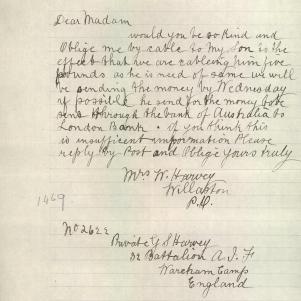 Dear Madam
would you be so kind and
Oblige me by cable to my Son to the
effect that we are cableing him five
pounds as he is need of same we will
be sending the money by Wednesday
if possible he send for the money to be
sent through the bank of Australia to
London Bank. if you think this
is insufficent information Please
reply by Post and Oblige yours truly
Mrs W. Harvey
Willaston
P.O.
1469
No 2622
Private G S Harvey
32 Battalion A.I.F
Wareham Camp
England